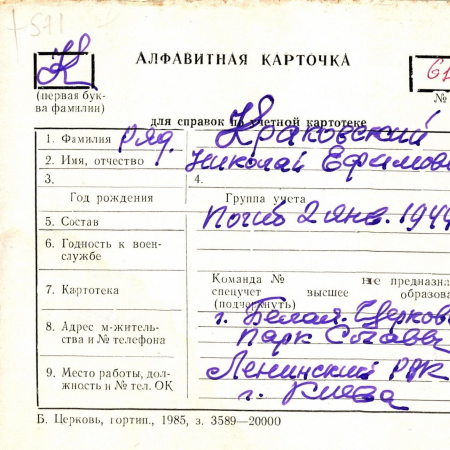 К
АЛФАВИТНАЯ КАРТОЧКА
61
(первая бук-
ва фамилии)
№
для справок по учетной картотеке
1. Фамилия ряд. Краковский
2. Имя, отчество Николай Ефимови
3. 4.
Год рождения Группа учета
5. Состав Погиб 2 янв. 1944
6. Годность к воен-
службе
Команда № не предназна
7. Картотека спецучет высшее образова
(подчеркнуть)
8. Адрес м-житель- г. Белая Церковь
ства и № телефона Парк Славы
9. Место работы, дол- Ленинский РВК
жность и № тел. ОК г. Киева
Б. Церковь, гортип., 1985, з. 3589—20000